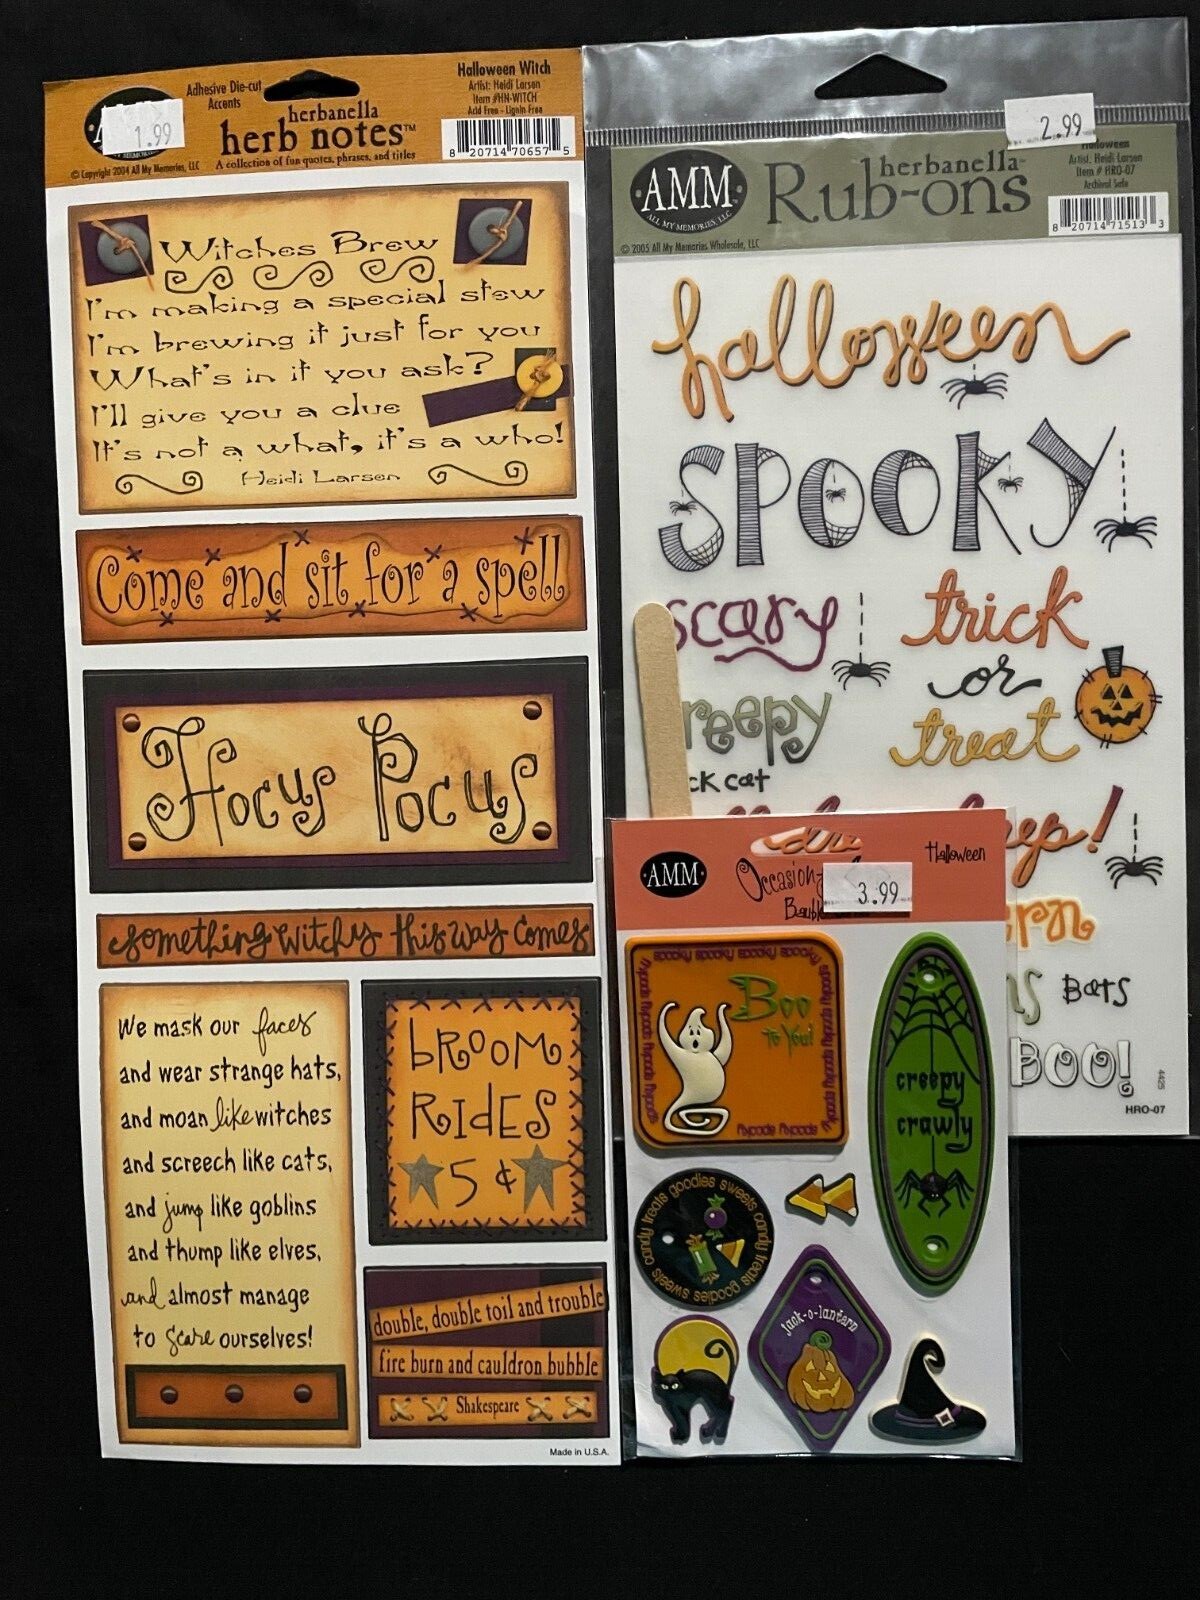 Adhesive Die-cut
Accents
1.99
herbanella
herb notes™
A collection of fun quotes, phrases, and titles
© Copyright 2004 All My Memories, LLC
Halloween Witch
Artist: Heidi Larson
Item #HN-WITCH
Acid Free - Lignin Free
8 20714 70657 5
Witches Brew
I'm making a special stew
I'm brewing it just for you
What's in it you ask?
I'll give you a clue
It's not a what, it's a who!
Heidi Larsen
Come and sit for a spell
Hocus Pocus
something witchy this way comes
We mask our faces
and wear strange hats,
and moan like witches
and screech like cats,
and jump like goblins
and thump like elves,
and almost manage
to scare ourselves!
Broom
Rides
5 ¢
double, double toil and trouble
fire burn and cauldron bubble
Shakespeare
Made in U.S.A.
2.99
AMM
ALL MY MEMORIES, LLC
herbanella™
Rub-ons
Halloween
Artist. Heidi Larson
Item # HRO-07
Archival Safe
8 20714 71513 3
© 2005 All My Memories Wholesale, LLC
halloween
SPOOKY
scary
trick
or
treat
reepy
ck cat
Bats
BOO!
4425
HRO-07
AMM
Occasion
Baubl
3.99
Halloween
spooky spooky spooky spooky
Boo
to You!
creepy
crawly
candy treats goodies sweets candy treats goodies sweets
jack-o-lantern